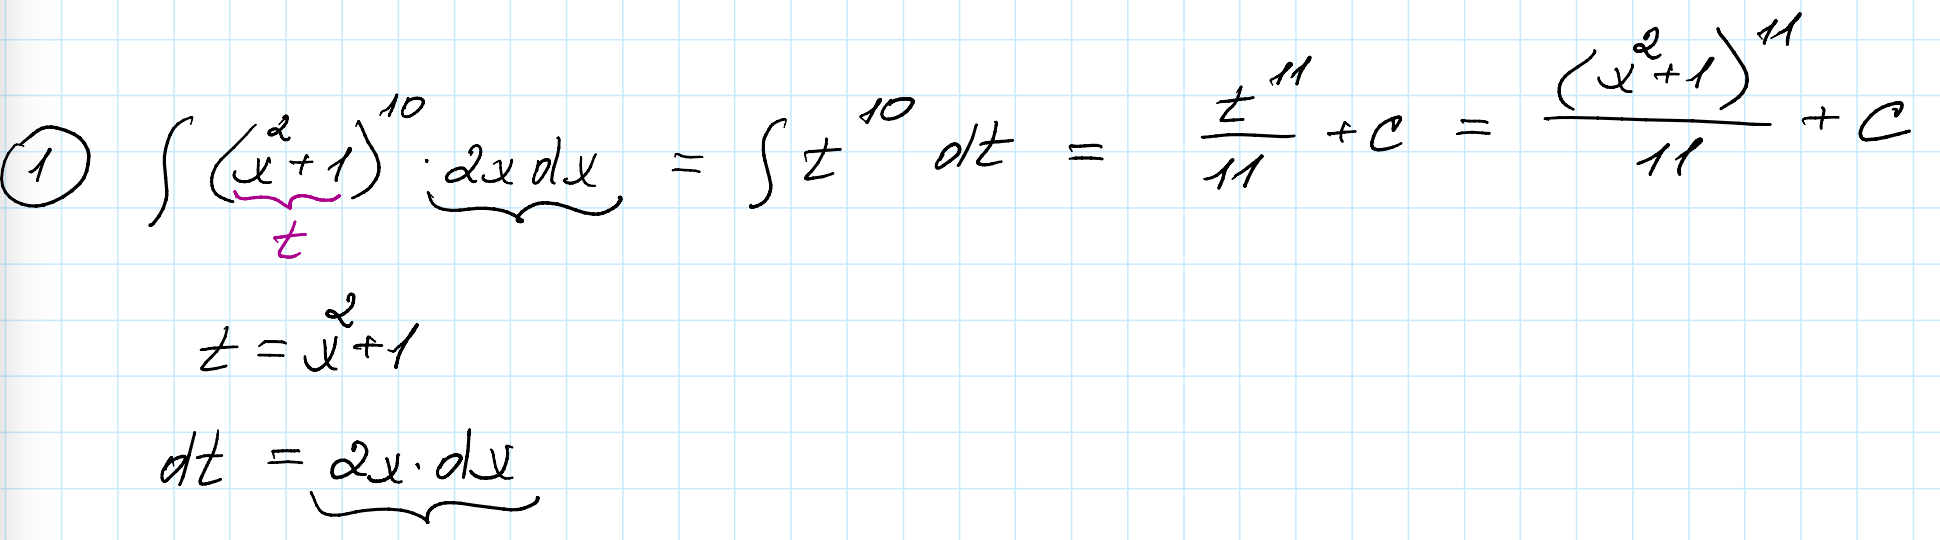 ① ∫ (x²+1)¹⁰ · 2x dx = ∫ t¹⁰ dt = t¹¹/11 + C = (x²+1)¹¹/11 + C
t
t = x²+1
dt = 2x · dx